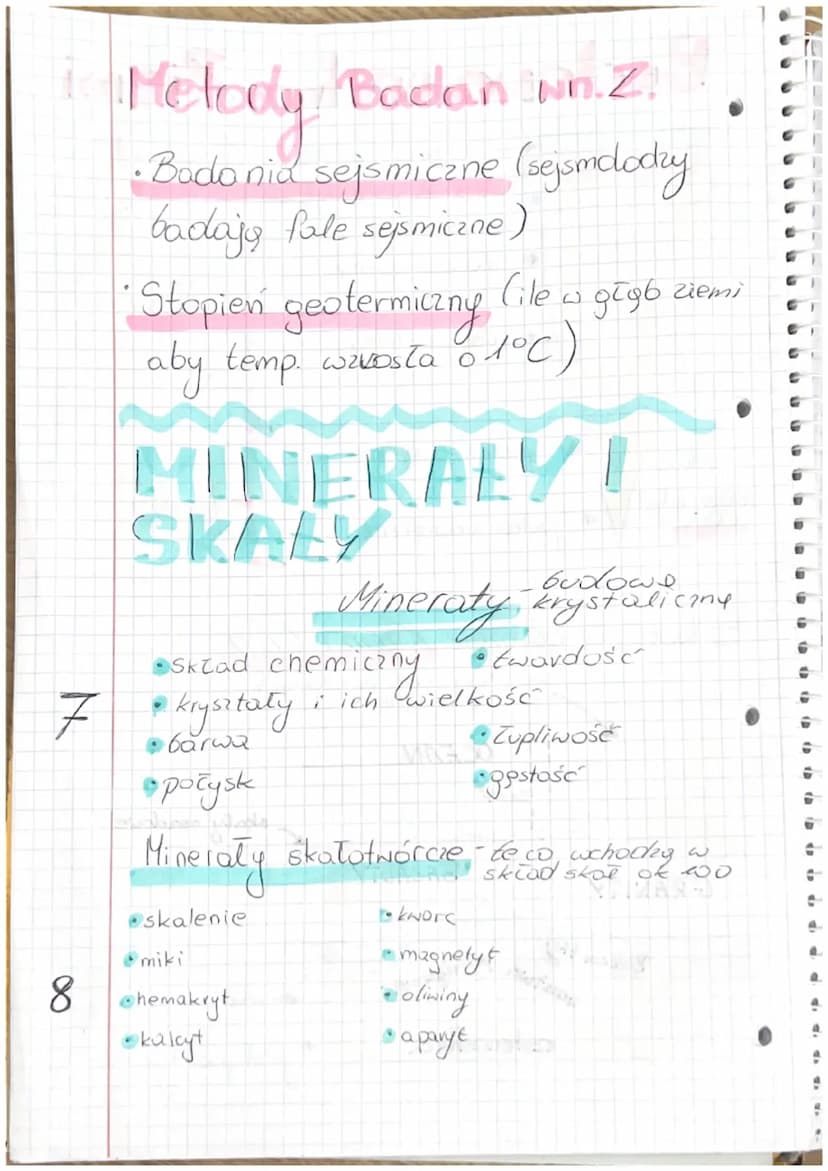 Metody Badan wn. Z.
• Badania sejsmiczne (sejsmolodzy
badają fale sejsmiczne)
• Stopień geotermiczny (ile w głąb ziemi
aby temp. wzrosła o 1°C)
MINERAŁY I
SKAŁY
Minerały - budowę
krystaliczną
• skład chemiczny • twardość
• kryształy i ich wielkość
7
• barwa • łupliwość
• połysk • gęstość
Minerały skałotwórcze - te co wchodzą w
skład skał ok 100
• skalenie • kwarc
• miki • magnetyt
8
• hemakryt • oliwiny
• kalcyt • apatyt